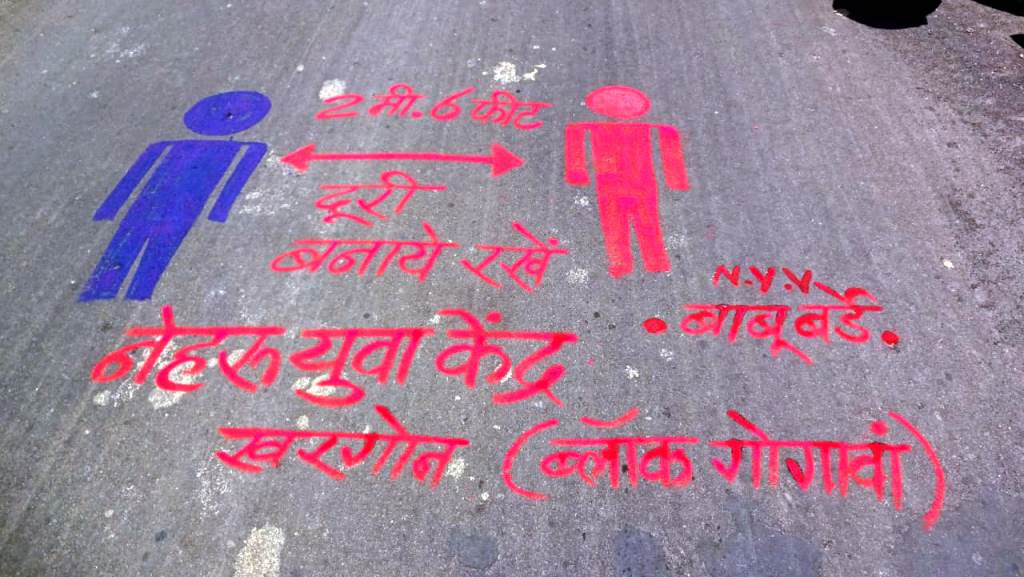 2 मी. 6 फीट
दूरी
बनाये रखें
N.Y.V.
बाबू बर्डे
नेहरू युवा केंद्र
खरगोन (ब्लॉक गोगावां)